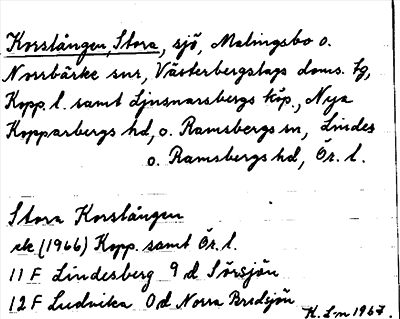 Korslången, Stora, sjö, Malingsbo o.
Norrbärke snr, Västerbergslags doms. tg,
Kopp. l. samt Ljusnarsbergs köp., Nya
Kopparbergs hd, o. Ramsbergs sn, Lindes
o. Ramsbergs hd, Ör. l.
Stora Korslången
ek (1966) Kopp. samt Ör. l.
11 F Lindesberg 9 d Sörsjön
12 F Ludvika 0 d Norra Bredsjön
K. L-n 1967.